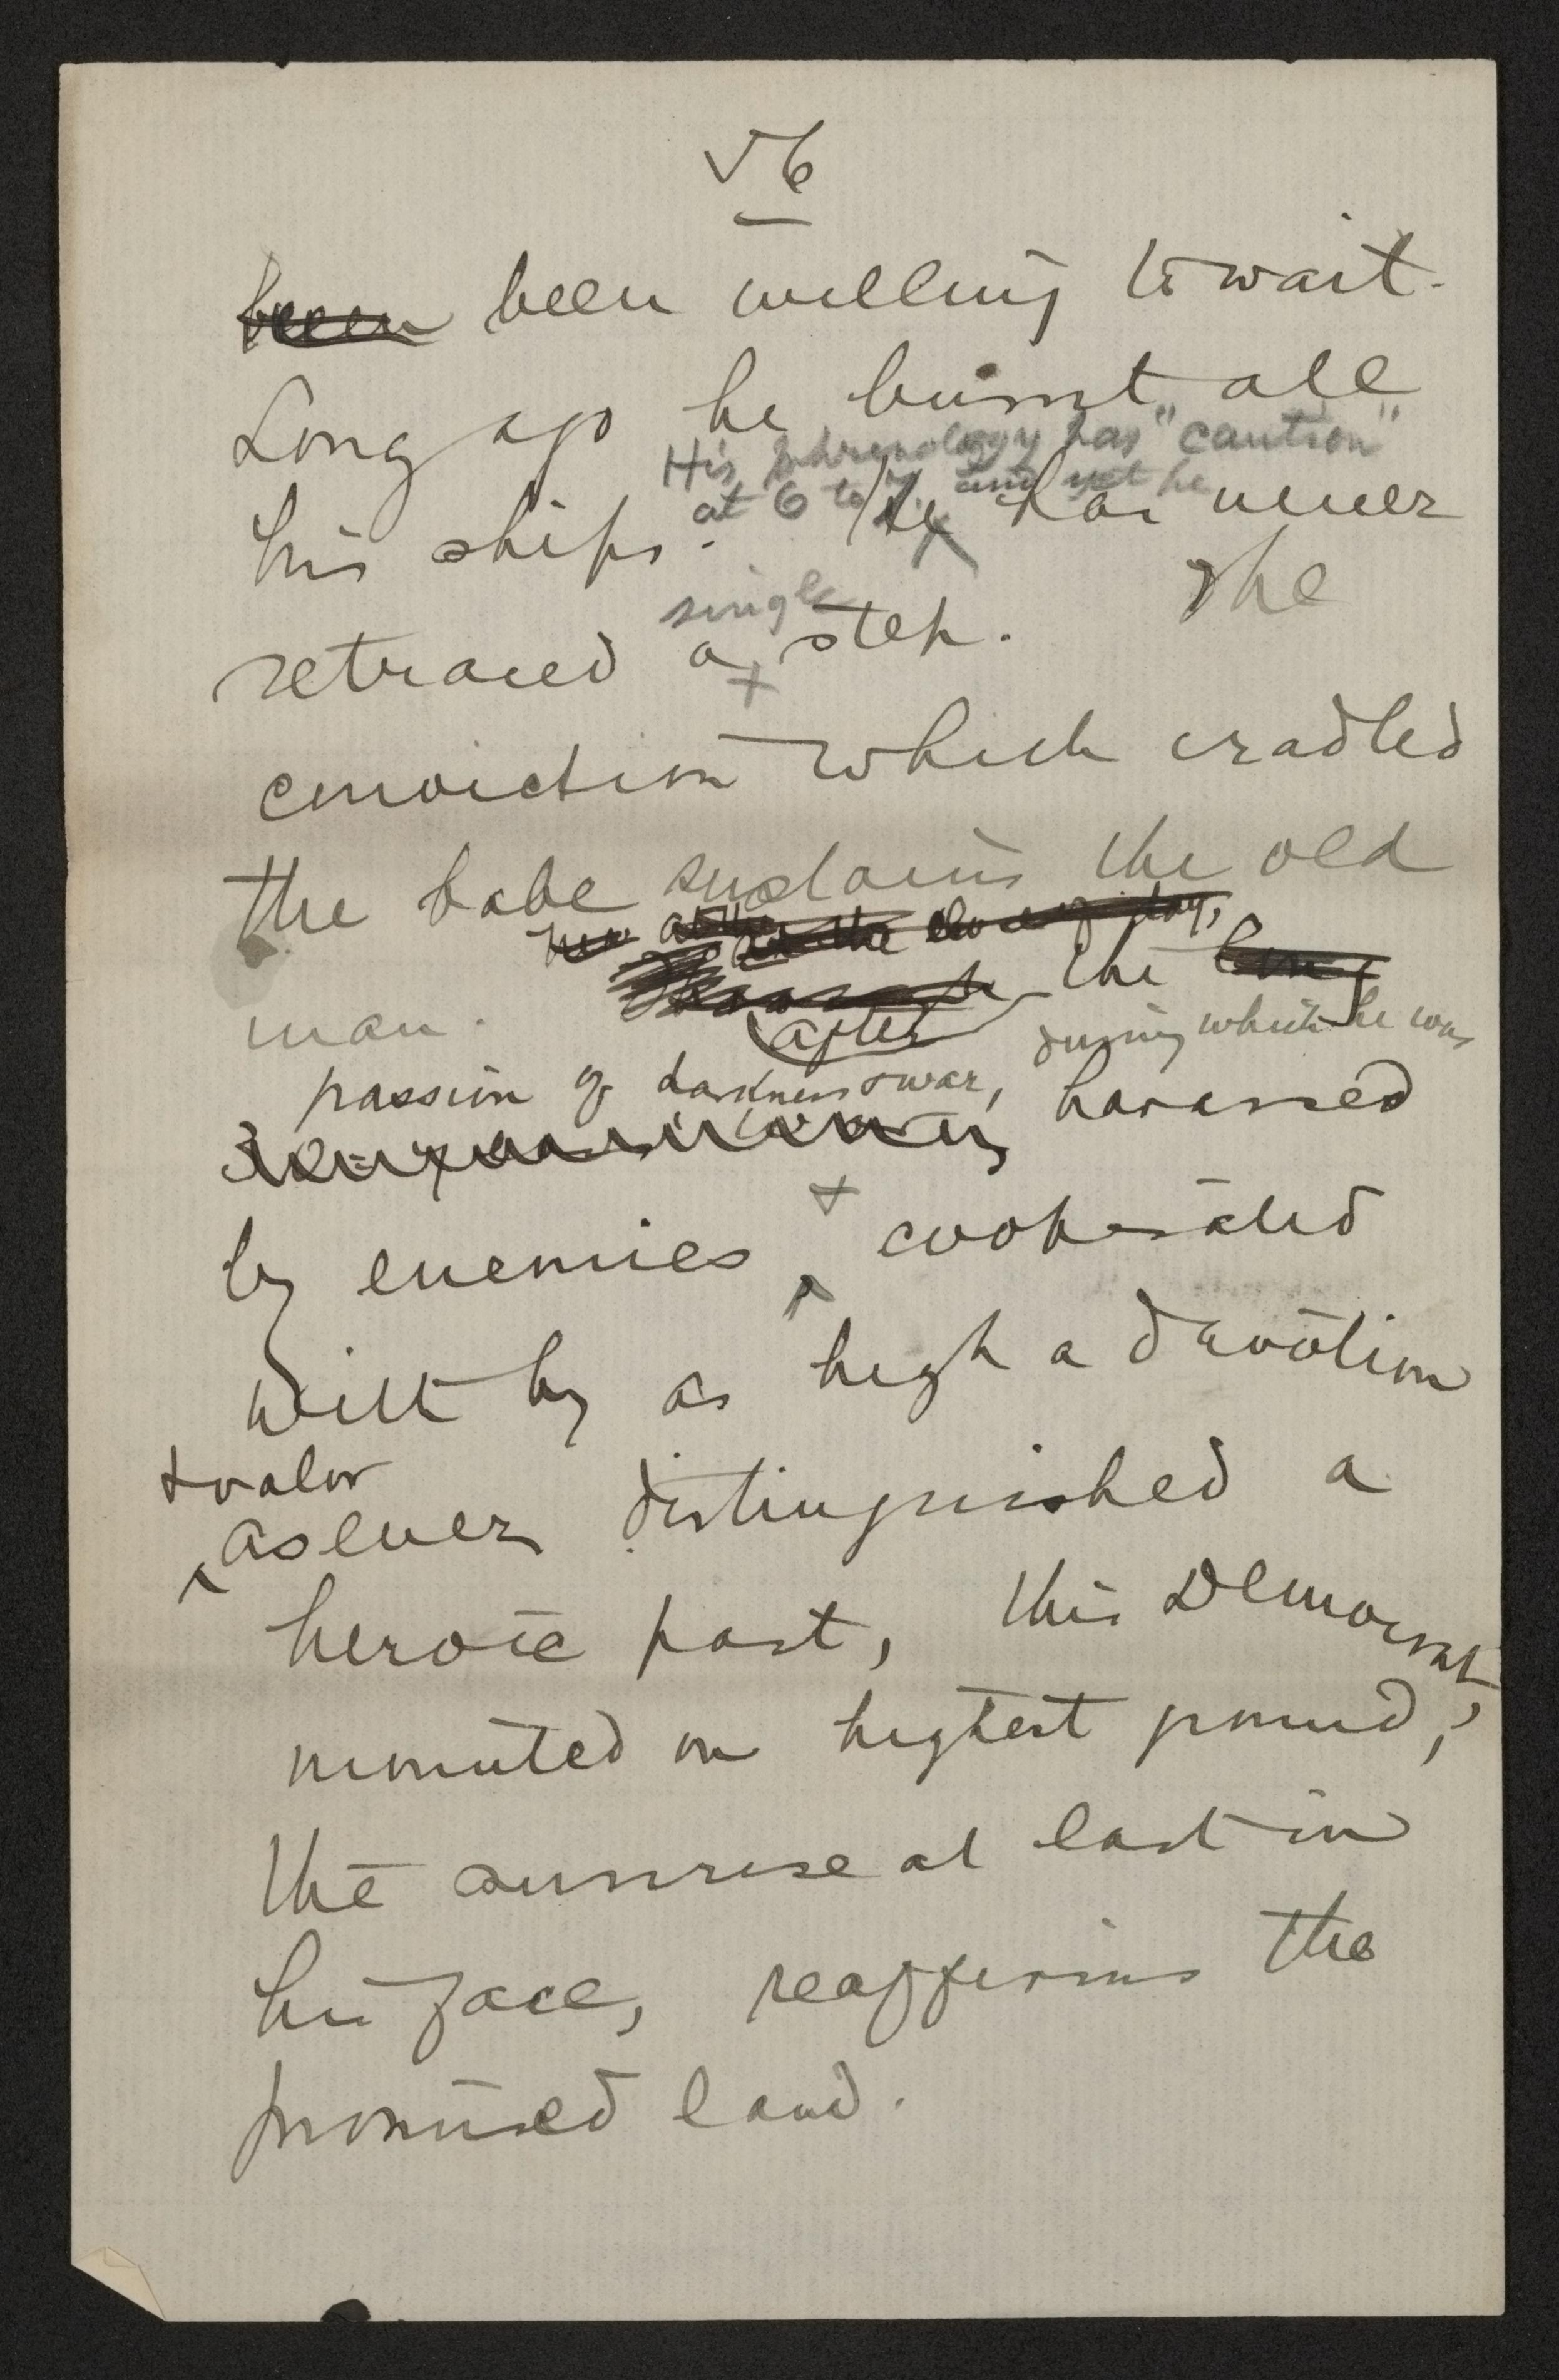 56
been been willing to wait.
Long ago he burnt all
His phrenology has "caution"
at 6 to 7. and yet he
his ships. He has never
single
retraced a + step. The
conviction which cradled
the babe sustains the old
at the close of day,
man. the long
after during which he was
passion of darkness & war,
harassed
by enemies + cooperated
with by as high a devotion
& valor
as ever distinguished a
heroic past, this Democrat,
mounted on highest ground,
the sunrise at last in
his face, reaffirms the
promised land.